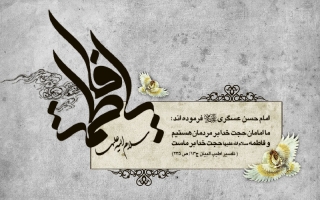 یا فاطمة
سلام الله علیها
امام حسن عسگری علیه السلام فرموده اند:
ما امامان حجت خدا بر مردمان هستیم
و فاطمه سلام الله علیها حجت خدا بر ماست
( تفسیر اطیب البیان ج۱۳؛ ص ۲۳۵ )